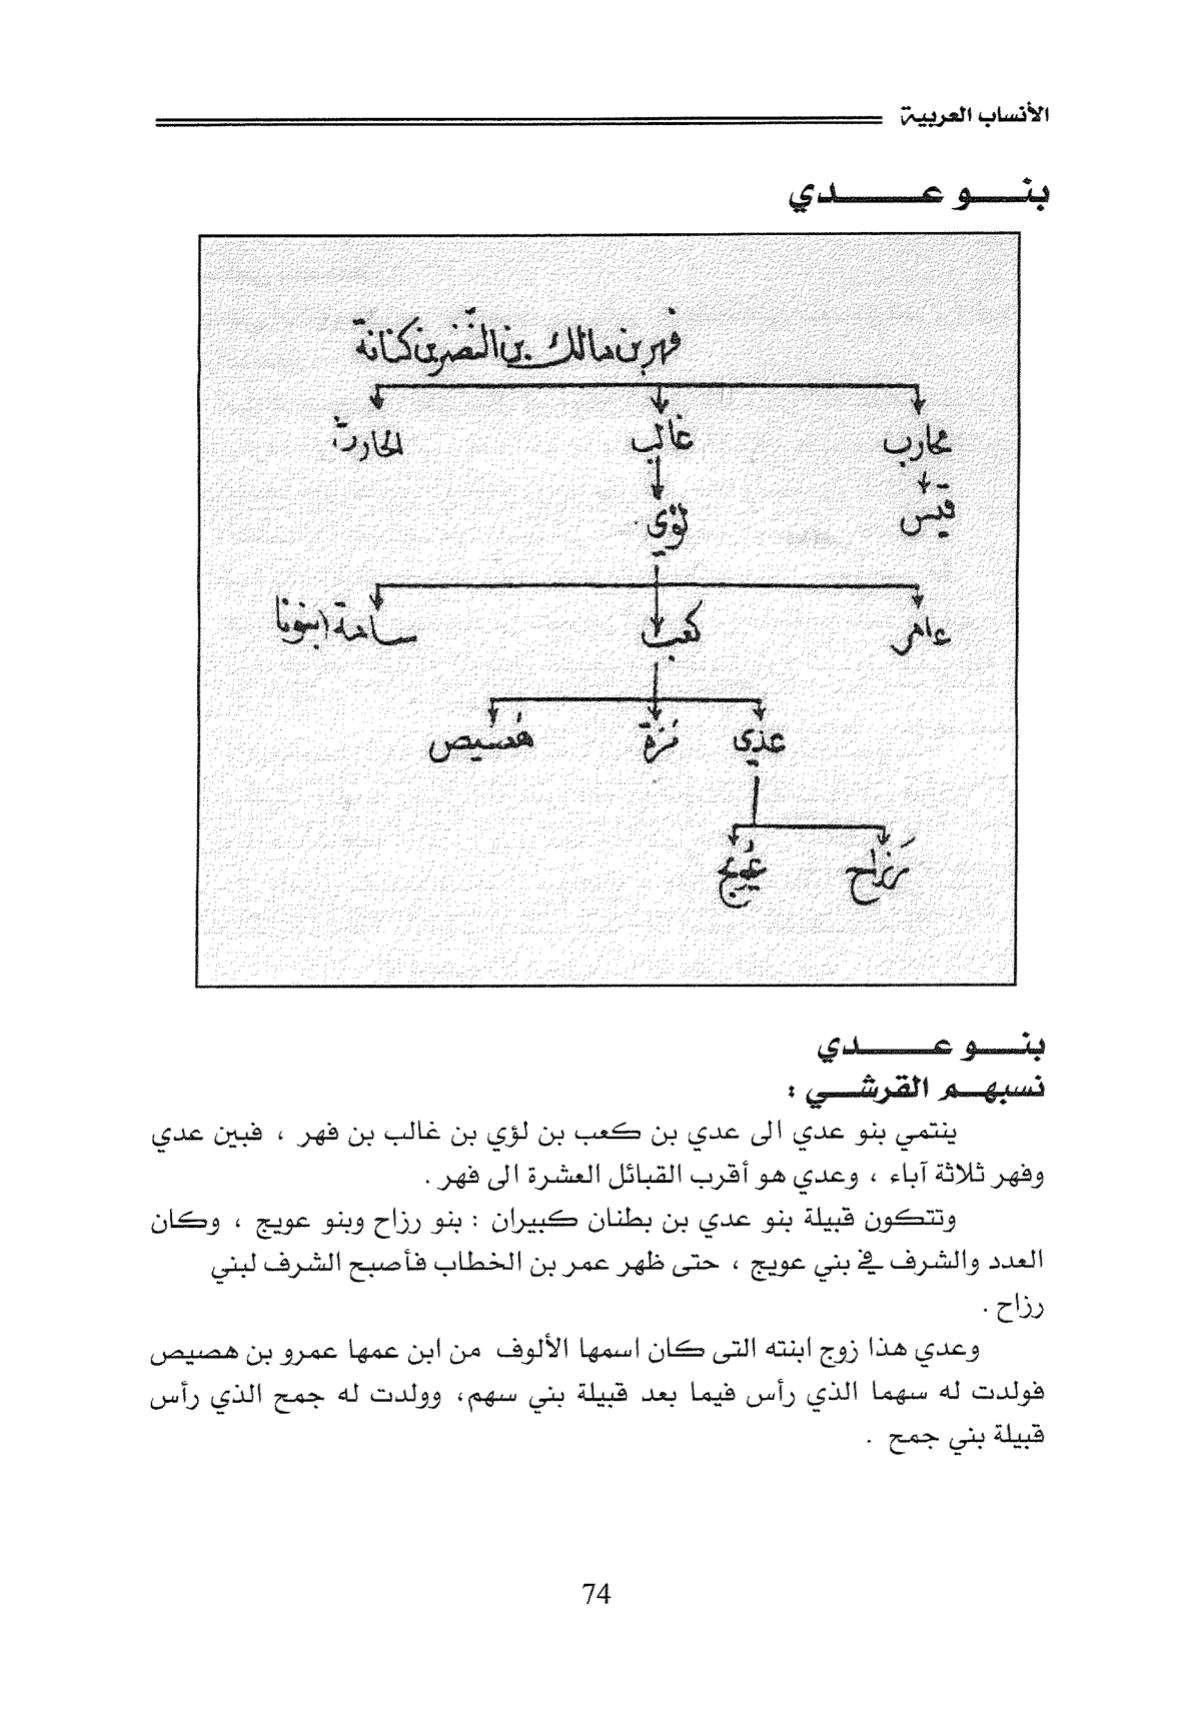 الأنساب العربية
بنو عدي
فهر بن مالك بن النضر بن كنانة
محارب غالب الحارث
قيس
لؤي
عامر كعب سامة ابنونا
عدي مرة هصيص
رزاح عويج
بنو عدي
نسبهم القرشي :
ينتمي بنو عدي الى عدي بن كعب بن لؤي بن غالب بن فهر ، فبين عدي
وفهر ثلاثة آباء ، وعدي هو أقرب القبائل العشرة الى فهر .
وتتكون قبيلة بنو عدي بن بطنان كبيران : بنو رزاح وبنو عويج ، وكان
العدد والشرف في بني عويج ، حتى ظهر عمر بن الخطاب فأصبح الشرف لبني
رزاح .
وعدي هذا زوج ابنته التى كان اسمها الألوف من ابن عمها عمرو بن هصيص
فولدت له سهما الذي رأس فيما بعد قبيلة بني سهم، وولدت له جمح الذي رأس
قبيلة بني جمح .
74